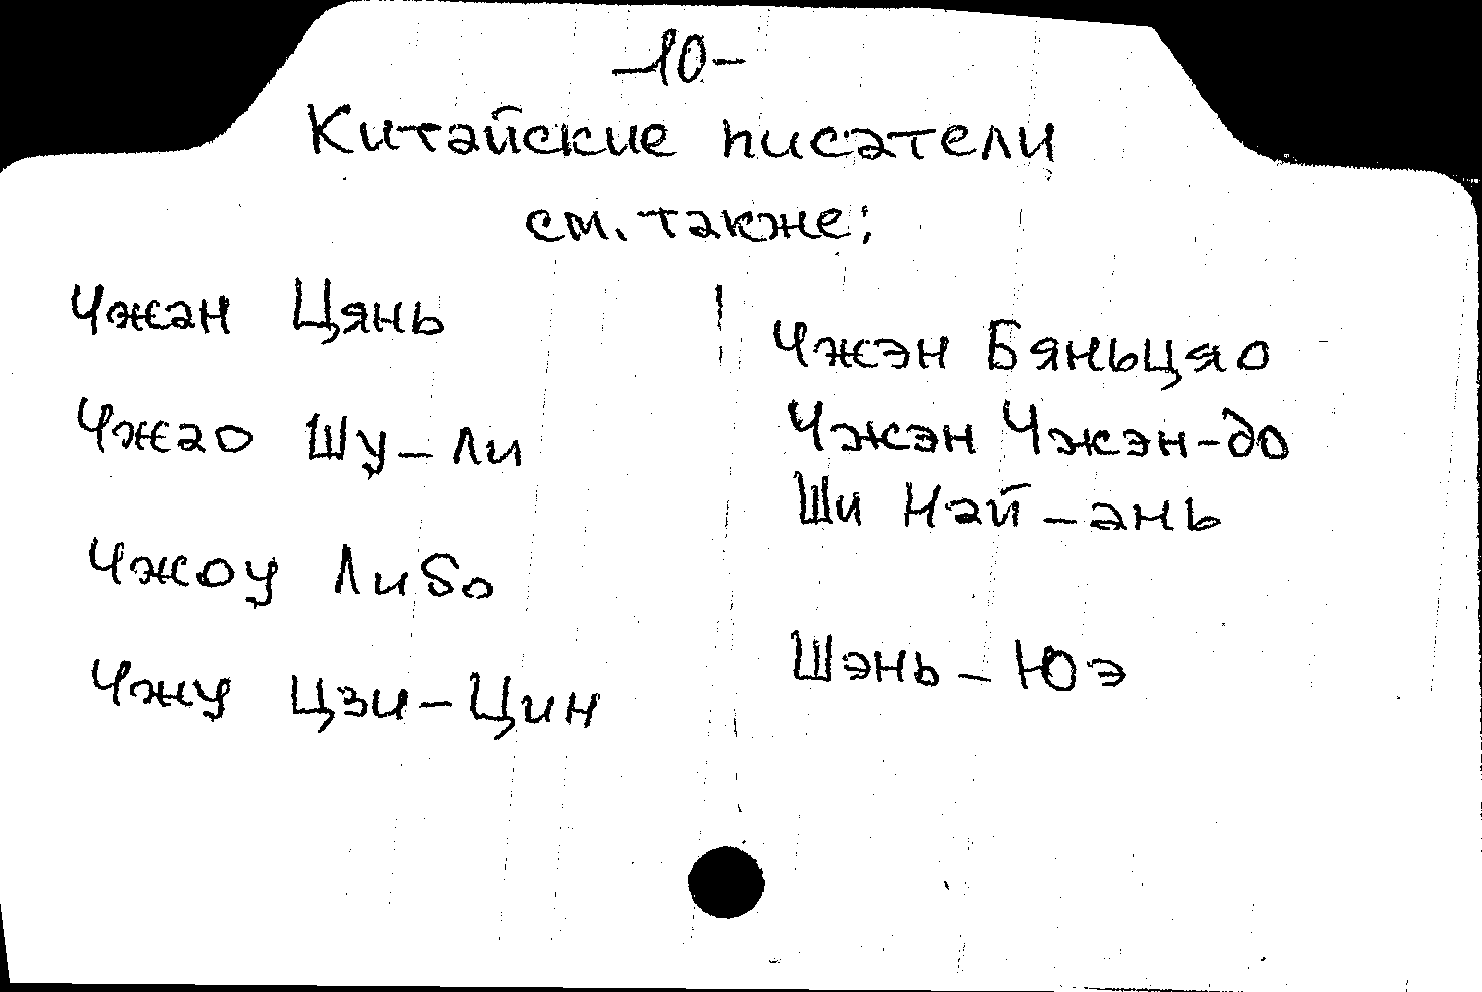 -10-
Китайские писатели
см. также:
Чжан Цянь
Чжао Шу-ли
Чжоу Либо
Чжу Цзи-Цин
Чжэн Бяньцяо
Чжэн Чжэн-до
Ши Най-ань
Шэнь-Юэ